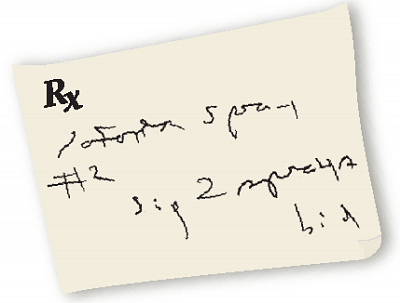 Rx
spray
#2
sig 2 sprays
bid